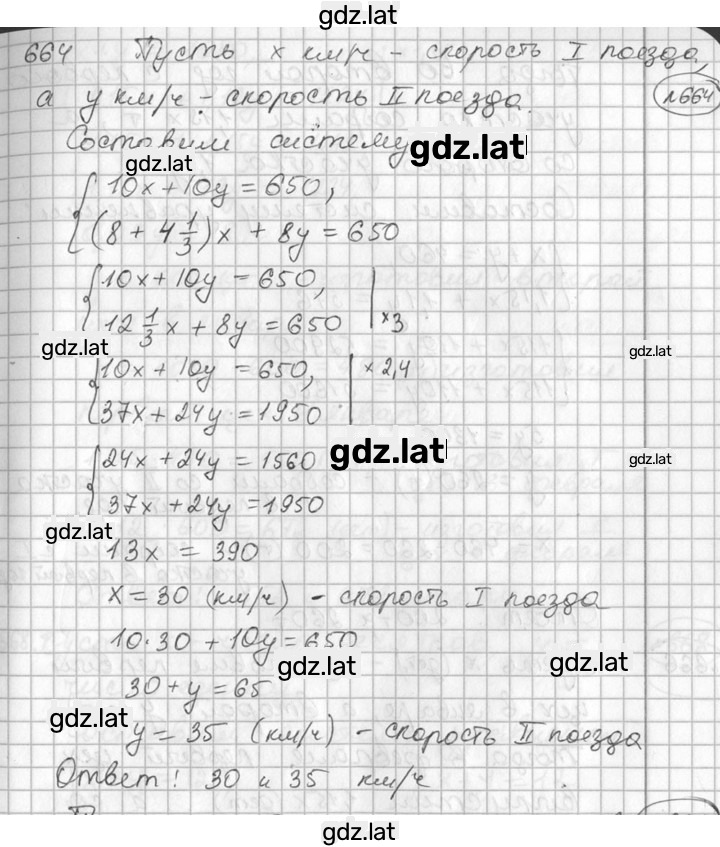 gdz.lat
664 Пусть x км/ч - скорость I поезда,
а y км/ч - скорость II поезда.
№664
Составим систему
gdz.lat
gdz.lat
10x + 10y = 650,
(8 + 4 1/3)x + 8y = 650
10x + 10y = 650,
12 1/3 x + 8y = 650 | ×3
gdz.lat
gdz.lat
10x + 10y = 650, | × 2,4
37x + 24y = 1950
gdz.lat
gdz.lat
24x + 24y = 1560
37x + 24y = 1950
gdz.lat
13x = 390
x = 30 (км/ч) - скорость I поезда
10·30 + 10y = 650
gdz.lat
gdz.lat
30 + y = 65
gdz.lat
y = 35 (км/ч) - скорость II поезда
Ответ: 30 и 35 км/ч
gdz.lat